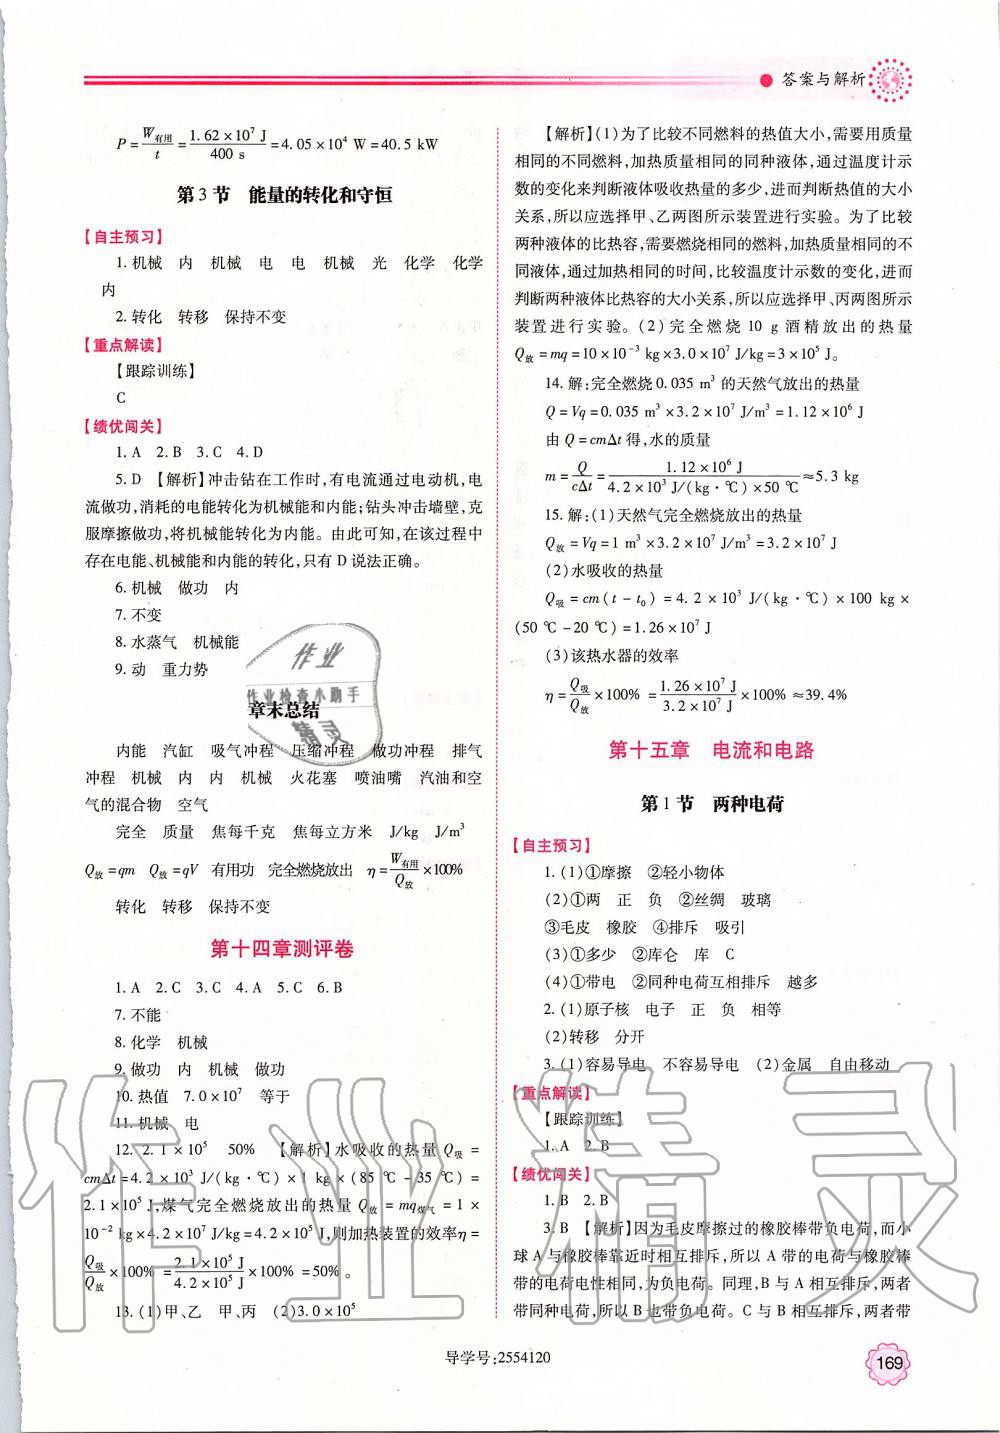 答案与解析
P=W有用/t=1.62×10⁷ J/400 s=4.05×10⁴ W=40.5 kW
第3节 能量的转化和守恒
【自主预习】
1.机械 内 机械 电 电 机械 光 化学 化学
内
2.转化 转移 保持不变
【重点解读】
【跟踪训练】
C
【绩优闯关】
1.A 2.B 3.C 4.D
5.D 【解析】冲击钻在工作时,有电流通过电动机,电
流做功,消耗的电能转化为机械能和内能;钻头冲击墙壁,克
服摩擦做功,将机械能转化为内能。由此可知,在该过程中
存在电能、机械能和内能的转化,只有D说法正确。
6.机械 做功 内
7.不变
8.水蒸气 机械能
9.动 重力势
作业
作业检查小助手
精灵
章末总结
内能 汽缸 吸气冲程 压缩冲程 做功冲程 排气
冲程 机械 内 内 机械 火花塞 喷油嘴 汽油和空
气的混合物 空气
完全 质量 焦每千克 焦每立方米 J/kg J/m³
Q放=qm Q放=qV 有用功 完全燃烧放出 η=W有用/Q放×100%
转化 转移 保持不变
第十四章测评卷
1.A 2.C 3.C 4.A 5.C 6.B
7.不能
8.化学 机械
9.做功 内 机械 做功
10.热值 7.0×10⁷ 等于
11.机械 电
12.2.1×10⁵ 50% 【解析】水吸收的热量Q吸=
cmΔt=4.2×10³ J/(kg·℃)×1 kg×(85 ℃-35 ℃)=
2.1×10⁵J,煤气完全燃烧放出的热量Q放=mq煤气=1×
10⁻² kg×4.2×10⁷ J/kg=4.2×10⁵ J,则加热装置的效率η=
Q吸/Q放×100%=2.1×10⁵ J/4.2×10⁵ J×100%=50%。
13.(1)甲、乙 甲、丙 (2)3.0×10⁵
【解析】(1)为了比较不同燃料的热值大小,需要用质量
相同的不同燃料,加热质量相同的同种液体,通过温度计示
数的变化来判断液体吸收热量的多少,进而判断热值的大小
关系,所以应选择甲、乙两图所示装置进行实验。为了比较
两种液体的比热容,需要燃烧相同的燃料,加热质量相同的不
同液体,通过加热相同的时间,比较温度计示数的变化,进而
判断两种液体比热容的大小关系,所以应选择甲、丙两图所示
装置进行实验。(2)完全燃烧10 g酒精放出的热量
Q放=mq=10×10⁻³ kg×3.0×10⁷ J/kg=3×10⁵ J。
14.解:完全燃烧0.035 m³的天然气放出的热量
Q=Vq=0.035 m³×3.2×10⁷ J/m³=1.12×10⁶ J
由Q=cmΔt得,水的质量
m=Q/cΔt=1.12×10⁶ J/4.2×10³ J/(kg·℃)×50 ℃≈5.3 kg
15.解:(1)天然气完全燃烧放出的热量
Q放=Vq=1 m³×3.2×10⁷ J/m³=3.2×10⁷ J
(2)水吸收的热量
Q吸=cm(t-t₀)=4.2×10³ J/(kg·℃)×100 kg×
(50 ℃-20 ℃)=1.26×10⁷ J
(3)该热水器的效率
η=Q吸/Q放×100%=1.26×10⁷ J/3.2×10⁷ J×100%≈39.4%
第十五章 电流和电路
第1节 两种电荷
【自主预习】
1.(1)①摩擦 ②轻小物体
(2)①两 正 负 ②丝绸 玻璃
③毛皮 橡胶 ④排斥 吸引
(3)①多少 ②库仑 库 C
(4)①带电 ②同种电荷互相排斥 越多
2.(1)原子核 电子 正 负 相等
(2)转移 分开
3.(1)容易导电 不容易导电 (2)金属 自由移动
【重点解读】
【跟踪训练】
1.A 2.B
【绩优闯关】
1.B 2.B
3.B 【解析】因为毛皮摩擦过的橡胶棒带负电荷,而小
球A与橡胶棒靠近时相互排斥,所以A带的电荷与橡胶棒
带的电荷电性相同,为负电荷。同理,B与A相互排斥,两者
带同种电荷,所以B也带负电荷。C与B相互排斥,两者带
导学号:2554120
169
作业精灵